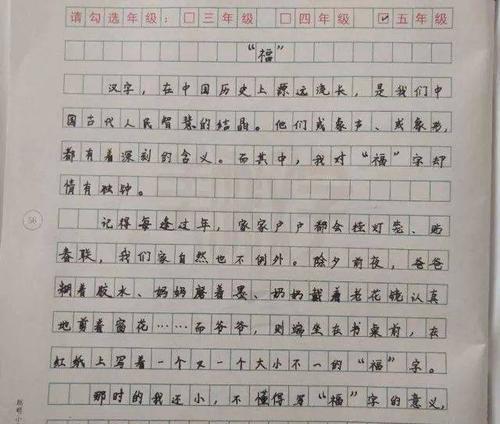 请勾选年级：□三年级 □四年级 ☑五年级
“福”
汉字，在中国历史上源远流长，是我们中
国古代人民智慧的结晶。他们或象声、或象形，
都有着深刻的含义。而其中，我对“福”字却
情有独钟。
记得每逢过年，家家户户都会挂灯笼、贴
春联，我们家自然也不例外。除夕前夜，爸爸
调着胶水、妈妈磨着墨、奶奶戴着老花镜认真
地剪着窗花……而爷爷，则端坐在书桌前，在
红纸上写着一个又一个大小不一的“福”字。
那时的我还小，不懂得写“福”字的意义，
56